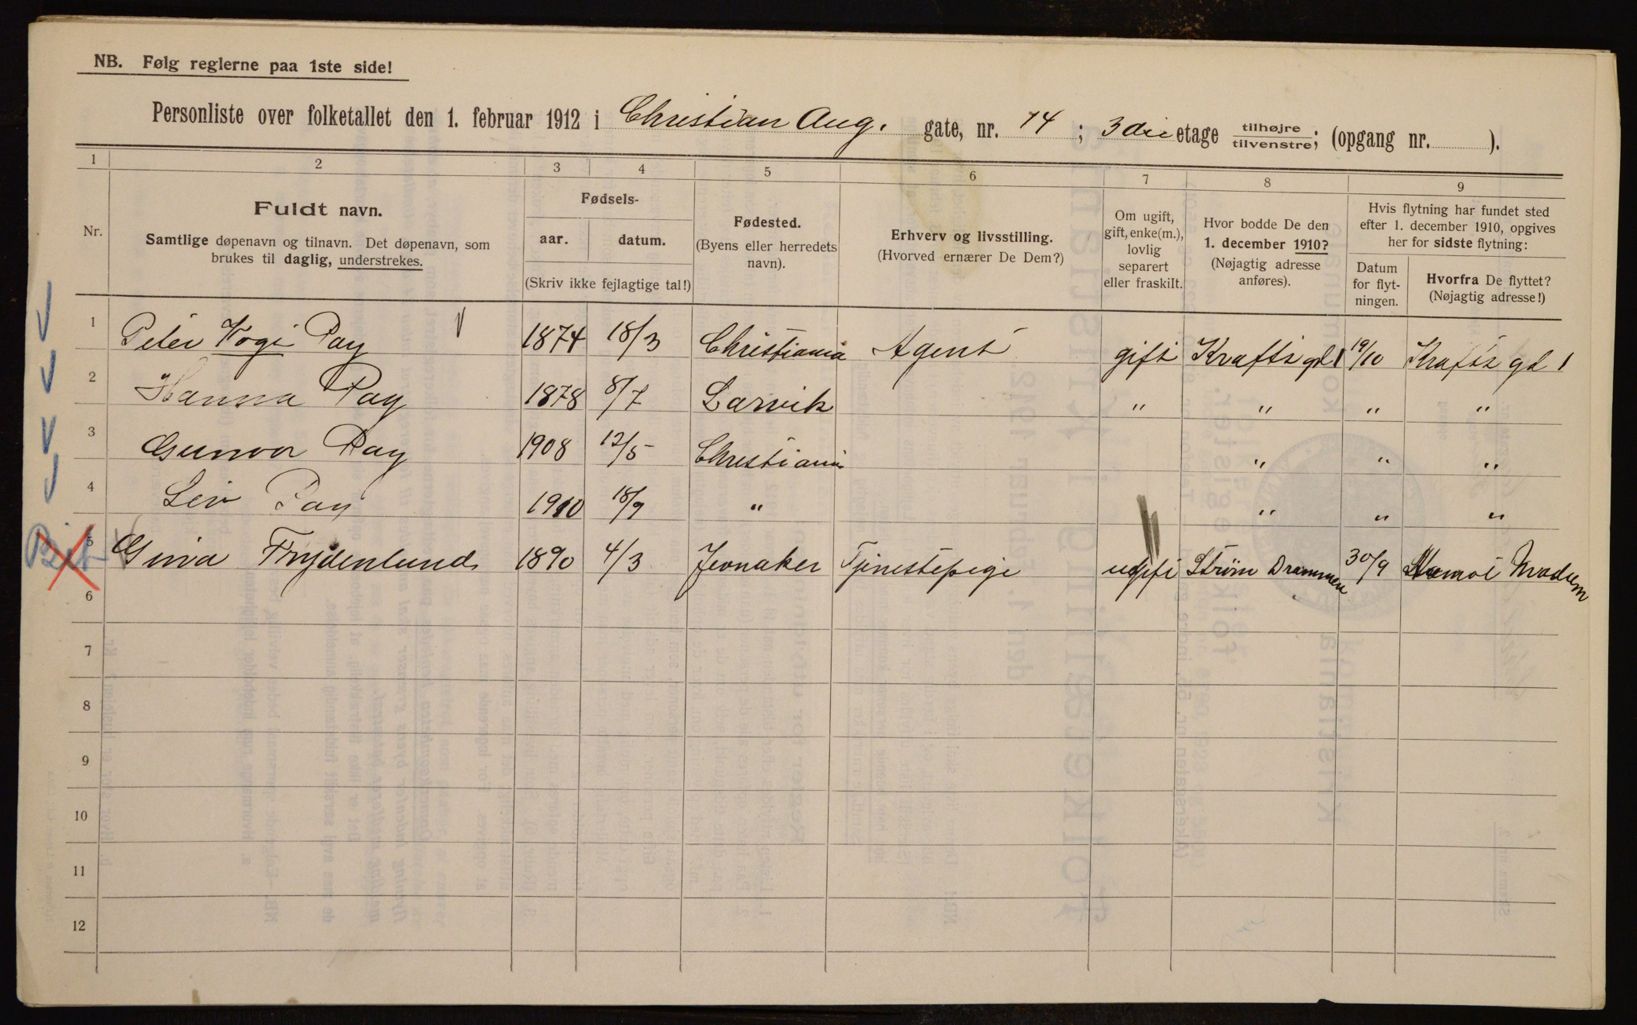 NB. Følg reglerne paa 1ste side!
Personliste over folketallet den 1. februar 1912 i Christian Aug. gate, nr. 14; 3die etage tilhøjre tilvenstre; (opgang nr. ).
1 2 3 4 5 6 7 8 9
Nr.
Fuldt navn.
Samtlige døpenavn og tilnavn. Det døpenavn, som
brukes til daglig, understrekes.
Fødsels-
aar. datum.
(Skriv ikke fejlagtige tal!)
Fødested.
(Byens eller herredets
navn).
Erhverv og livsstilling.
(Hvorved ernærer De Dem?)
Om ugift,
gift, enke(m.),
lovlig
separert
eller fraskilt.
Hvor bodde De den
1. december 1910?
(Nøjagtig adresse
anføres).
Hvis flytning har fundet sted
efter 1. december 1910, opgives
her for sidste flytning:
Datum
for flyt-
ningen.
Hvorfra De flyttet?
(Nøjagtig adresse!)
1 Peter Vogt Pay 1874 18/3 Christiania Agent gift Krafts gd 1 19/10 Krafts gd 1
2 Hanna Pay 1878 8/7 Larvik " " " "
3 Gunvor Pay 1908 12/5 Christiania " " "
4 Liv Pay 1910 18/9 " " " "
5 Gina Frydenlund 1890 4/3 Jevnaker Tjenestepige ugift Strøm Drammen 30/9 Modum
6
7
8
9
10
11
12